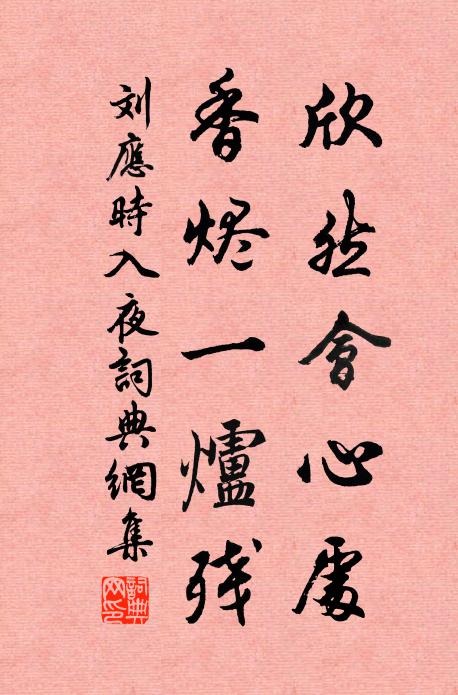 欣然會心處
香烬一爐残
刘應時入夜詞典網集
詞典网印